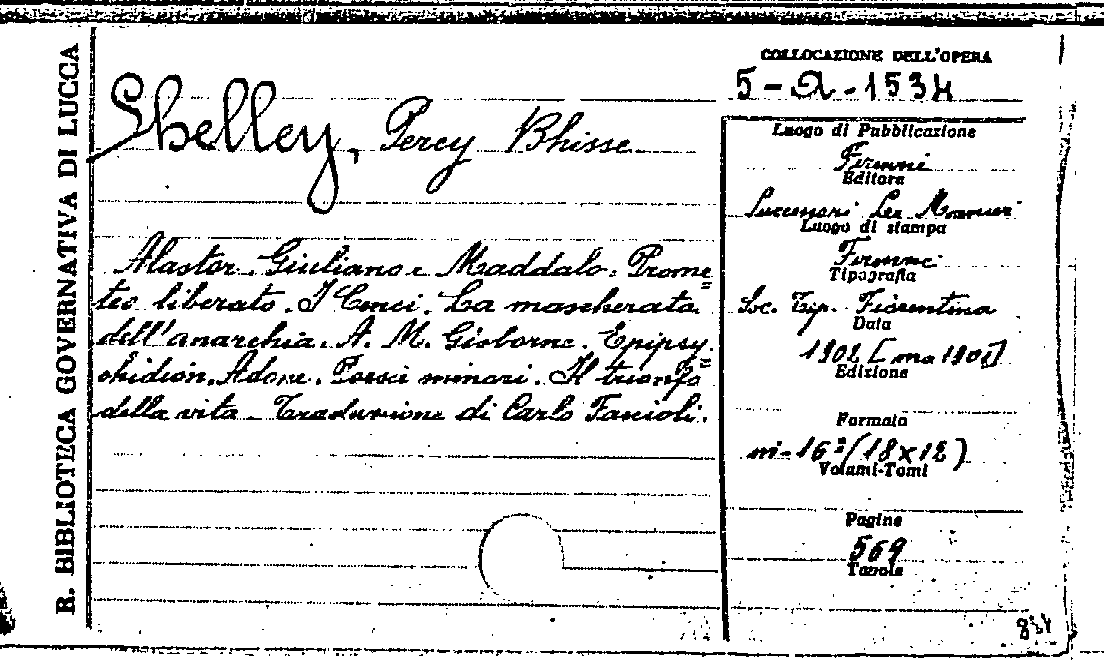 R. BIBLIOTECA GOVERNATIVA DI LUCCA
Shelley, Percy Bhisse
Alastor. Giuliano e Maddalo. Prome=
teo liberato. I Cenci. La mascherata
dell'anarchia. A. M. Gisborne. Epipsy=
chidion. Adone. Poesei minori. Il trionfo
della vita - Traduzione di Carlo Fanioli.
COLLOCAZIONE DELL'OPERA
5-A-1534
Luogo di Pubblicazione
Firenze
Editore
Successori Le Monnier
Luogo di stampa
Firenze
Tipografia
Soc. Tip. Fiorentina
Data
1902 [ma 1901]
Edizione
Formato
in-16° (18x12)
Volumi-Tomi
Pagine
569
Tavole